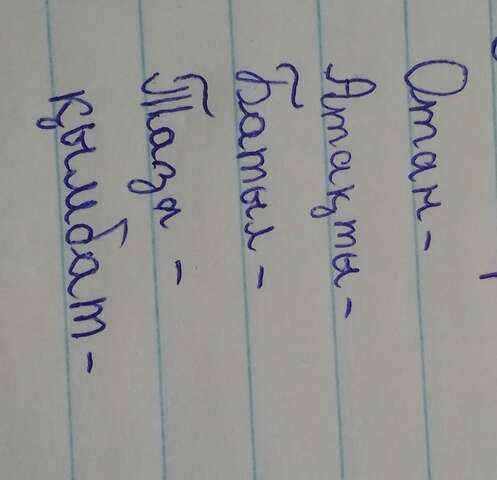 Отан-
Атақты-
Батыл-
Таза-
қымбат-